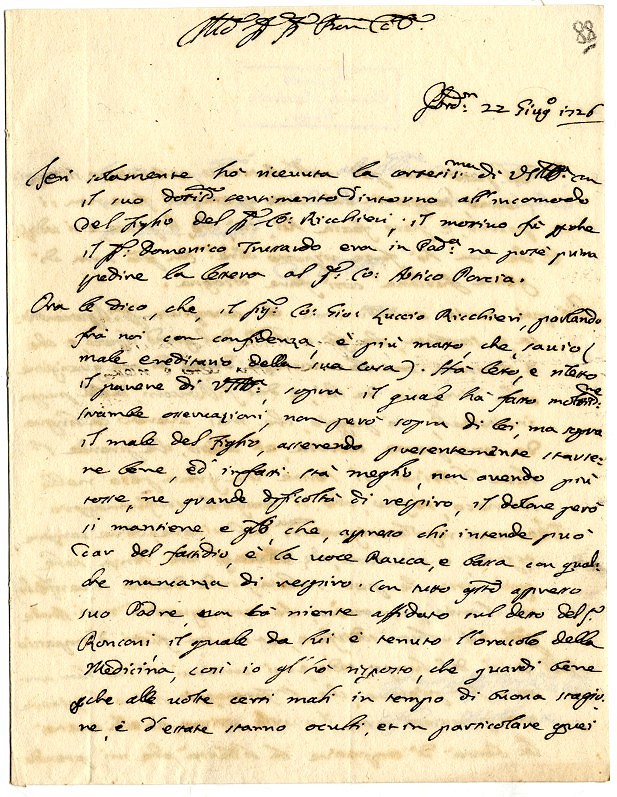 88
22 Giug.o 1726
Jeri solamente hò ricevuta la cortesis.ma di
il suo sentimento d'intorno all'incomodo
del figlio del Co: Ricchieri, il motivo fù che
il Domenico era in Pad.a ne potè
spedire la lettera al Co: Artico Porcia.
Ora le dico, che, il Sig.r Co: Gio: Luccio Ricchieri, parlando
frà noi con confidenza, è più matto, che savio (
male ereditario della sua casa). Hà letto, e riletto
il parere di sopra il quale hà fatto
strambe osservazioni, non però sopra di lei, ma sopra
il male del figlio, asserendo presentemente star-
ne bene, ed infatti stà meglio, non avendo più
tosse, ne grande dificoltà di respiro, il dolore però
si mantiene, e che, appresso chi intende può
dar del fastidio, è la voce Rauca, e bassa con qual-
che mancanza di respiro. Con tutto appresso
suo Padre, non hà niente affidato sul detto del S.r
Ronconi, il quale da lui è tenuto l'oracolo della
Medicina, così io gl'hò risposto, che guardi bene
che alle volte certi mali in tempo di buona stagio-
ne, è d'estate stanno oculti, et in particolare quei